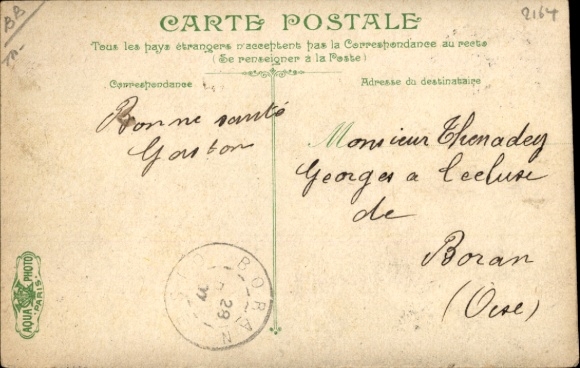 BB
2164
CARTE POSTALE
Tous les pays étrangers n'acceptent pas la Correspondance au recto
(Se renseigner à la Poste)
Correspondance
Adresse du destinataire
Bonne santé
Gaston
Monsieur Thenadey
Georges a lecluse
de
Boran
(Oise)
BORAN
28
AQUA PHOTO
PARIS